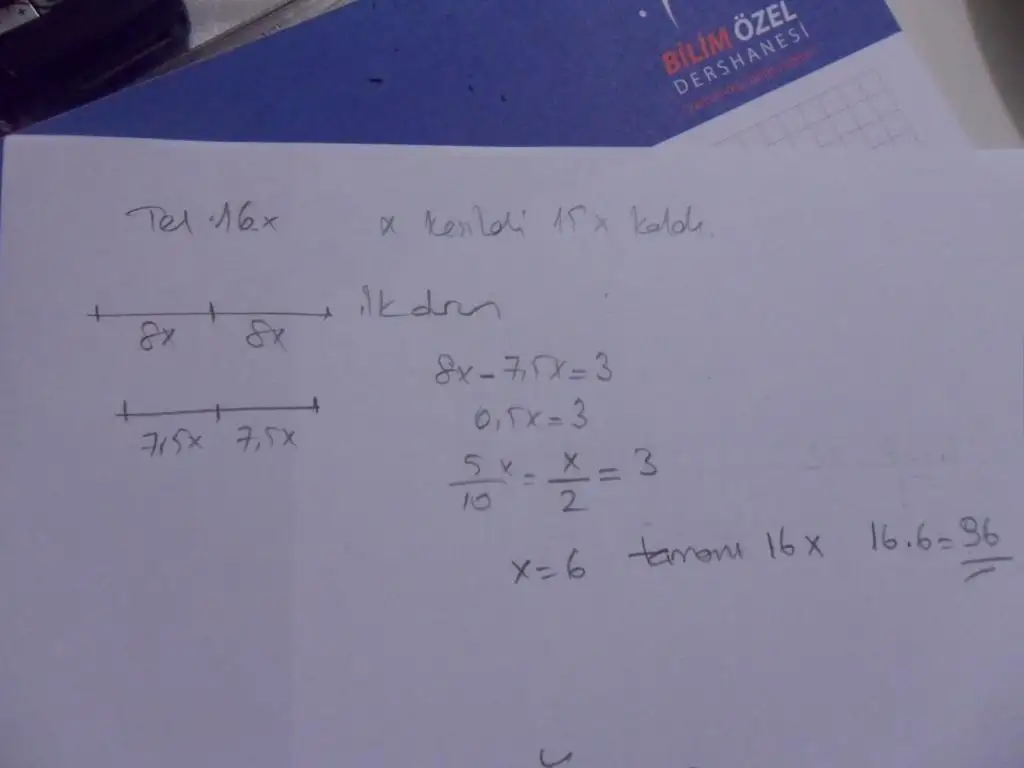 BİLİM ÖZEL
DERSHANESİ
Tel 16x x kesildi 15x kaldı.
8x 8x ilk drm
7,5x 7,5x
8x - 7,5x = 3
0,5x = 3
5x/10 = x/2 = 3
x = 6 tamamı 16x 16.6 = 96